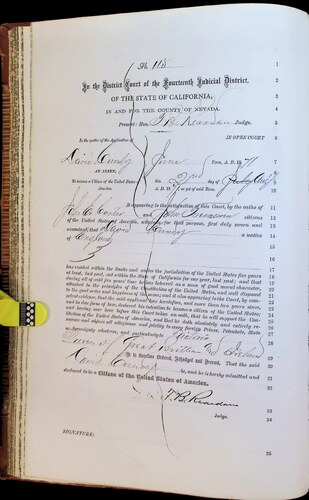 No. 115
In the District Court of the Fourteenth Judicial District,
OF THE STATE OF CALIFORNIA,
IN AND FOR THE COUNTY OF NEVADA.
Present: Hon. T. B. Reardan Judge.
In the matter of the Application of
IN OPEN COURT
David Cundy June Term, A. D. 1871
AN ALIEN,
To become a Citizen of the United States of America.
2nd day of
A. D. 187
It appearing to the satisfaction of this Court, by the oaths of
and John citizens
of the United States of America, witnesses for that purpose, first duly sworn and
examined, that David Cundy a native
of England
has resided within the limits and under the jurisdiction of the United States five years
at least, last past, and within the State of California for one year, last past; and that
during all of said five years' time he has behaved as a man of good moral character,
attached to the principles of the Constitution of the United States, and well disposed
to the good order and happiness of the same; and it also appearing to the Court, by com-
petent evidence, that the said applicant has heretofore, and more than two years since,
and in due form of law, declared his intention to become a citizen of the United States;
and having now here before this Court taken an oath, that he will support the Con-
stitution of the United States of America, and that he doth absolutely and entirely re-
nounce and abjure all allegiance and fidelity to every foreign Prince, Potentate, State
or Sovereignty whatever, and particularly to Victoria
Queen of Great Brittan and Ireland
It is therefore Ordered, Adjudged and Decreed, That the said
David Cundy be, and he is hereby admitted and
declared to be a Citizen of the United States of America.
T. B. Reardan
Judge.
SIGNATURE: